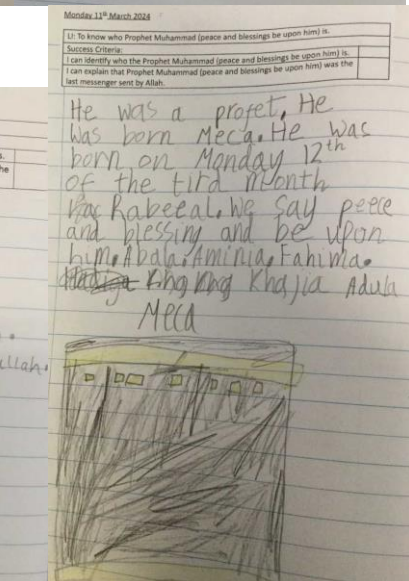 Monday 11th March 2024
LI: To know who Prophet Muhammad (peace and blessings be upon him) is.
Success Criteria:
I can identify who the Prophet Muhammad (peace and blessings be upon him) is.
I can explain that Prophet Muhammad (peace and blessings be upon him) was the
last messenger sent by Allah.
He was a profet. He
was born Meca. He was
born on Monday 12th
of the tird month
Rabeeal. We say peece
and blessing and be upon
him. Abala. Aminia. Fahima.
Khajia Adula
Meca
s.
he
allah.